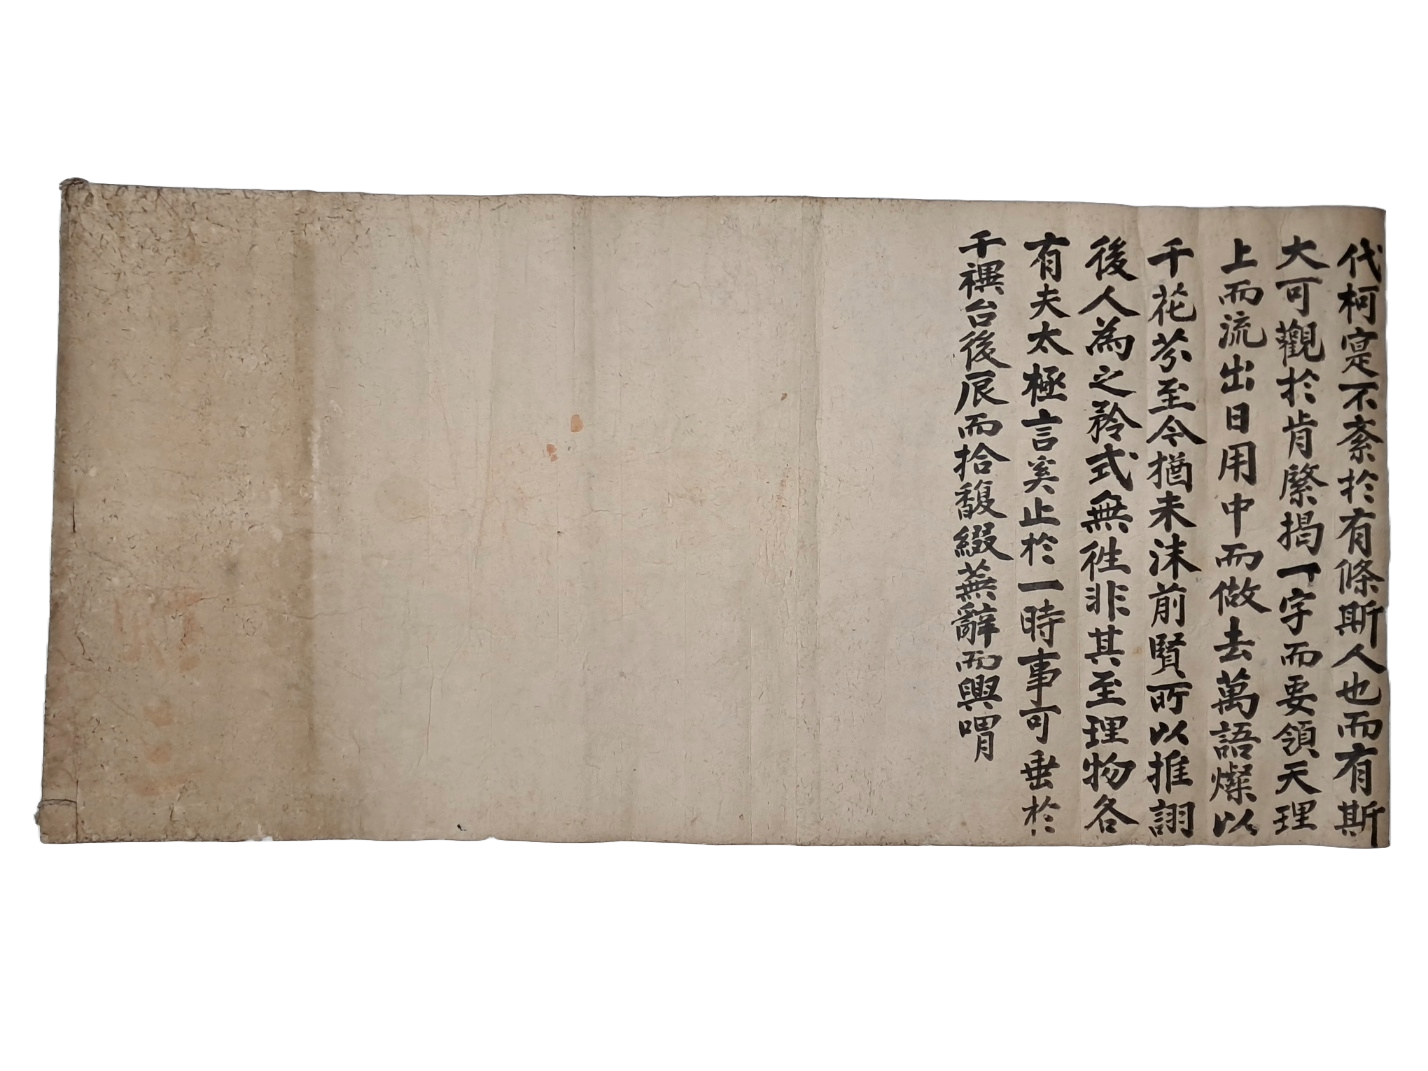 代柯寔不紊於有條斯人也而有斯
大可觀於肯綮揭一字而要領天理
上而流出日用中而做去萬語燦以
千花芬至今猶未沫前賢所以推詡
後人為之矜式無徃非其至理物各
有夫太極言奚止於一時事可垂於
千禩台後辰而拾馥綴蕪辭而興喟